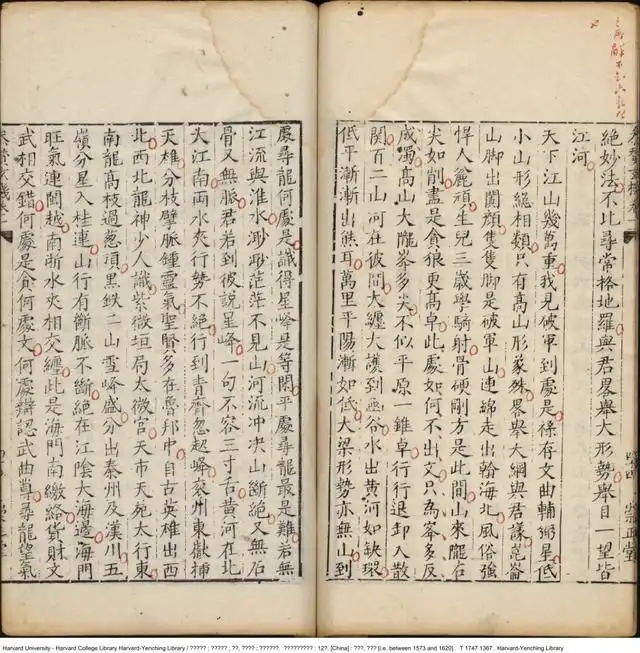 絶妙法不比尋常格地羅與君畧舉大形勢舉目一望皆
江河
天下江山幾萬重我見破軍到處是祿存文曲輔弼星低
小山形總相類只有高山形象殊畧舉大綱與君議崑崙
山脚出闐顏隻隻脚是破軍山連綿走出瀚海北風俗強
悍人麄頑生兒三歲學騎射骨硬剛方是此間山來隴右
尖如削盡是貪狼更高卓此處如何不出文只為峯多反
成濁高山大隴峯多尖不似平原一錐卓行行退卸入散
関百二山河在彼間大纏大護到函谷水出黃河如缺環
低平漸漸出熊耳萬里平陽漸如低大梁形勢亦無山到
處尋龍何處是識得星峰是等閒平處尋龍最是難若無
江流與淮水渺渺茫茫不見山河流冲决山斷絕又無石
骨又無脈君若到彼說星峰一句不容三寸舌黃河在北
大江南兩水夾行勢不絕行到青齊忽起峰兗州東嶽插
天雄分枝擘脈鍾靈氣聖賢多在魯邦中自古英雄出西
北西北龍神少人識紫微垣局太微宮天市天苑太行東
南龍高枝過葱頂黑鉄二山雪峰盛分出秦州及漢川五
嶺分星入桂連山行有斷脈不斷絕在江陰大海邊海門
旺氣連閩越南浙水夾相交纏此是海門南繳絡貨財文
武相交錯何處是貪何處文何處辯認武曲尊尋龍望氣
Harvard University - Harvard College Library Harvard-Yenching Library / ????? ; ????? ; ??, ???? ; ??????. ?????????? : 12?. [China] : ???, ??? [i.e. between 1573 and 1620] : T 1747 1367 . Harvard-Yenching Library